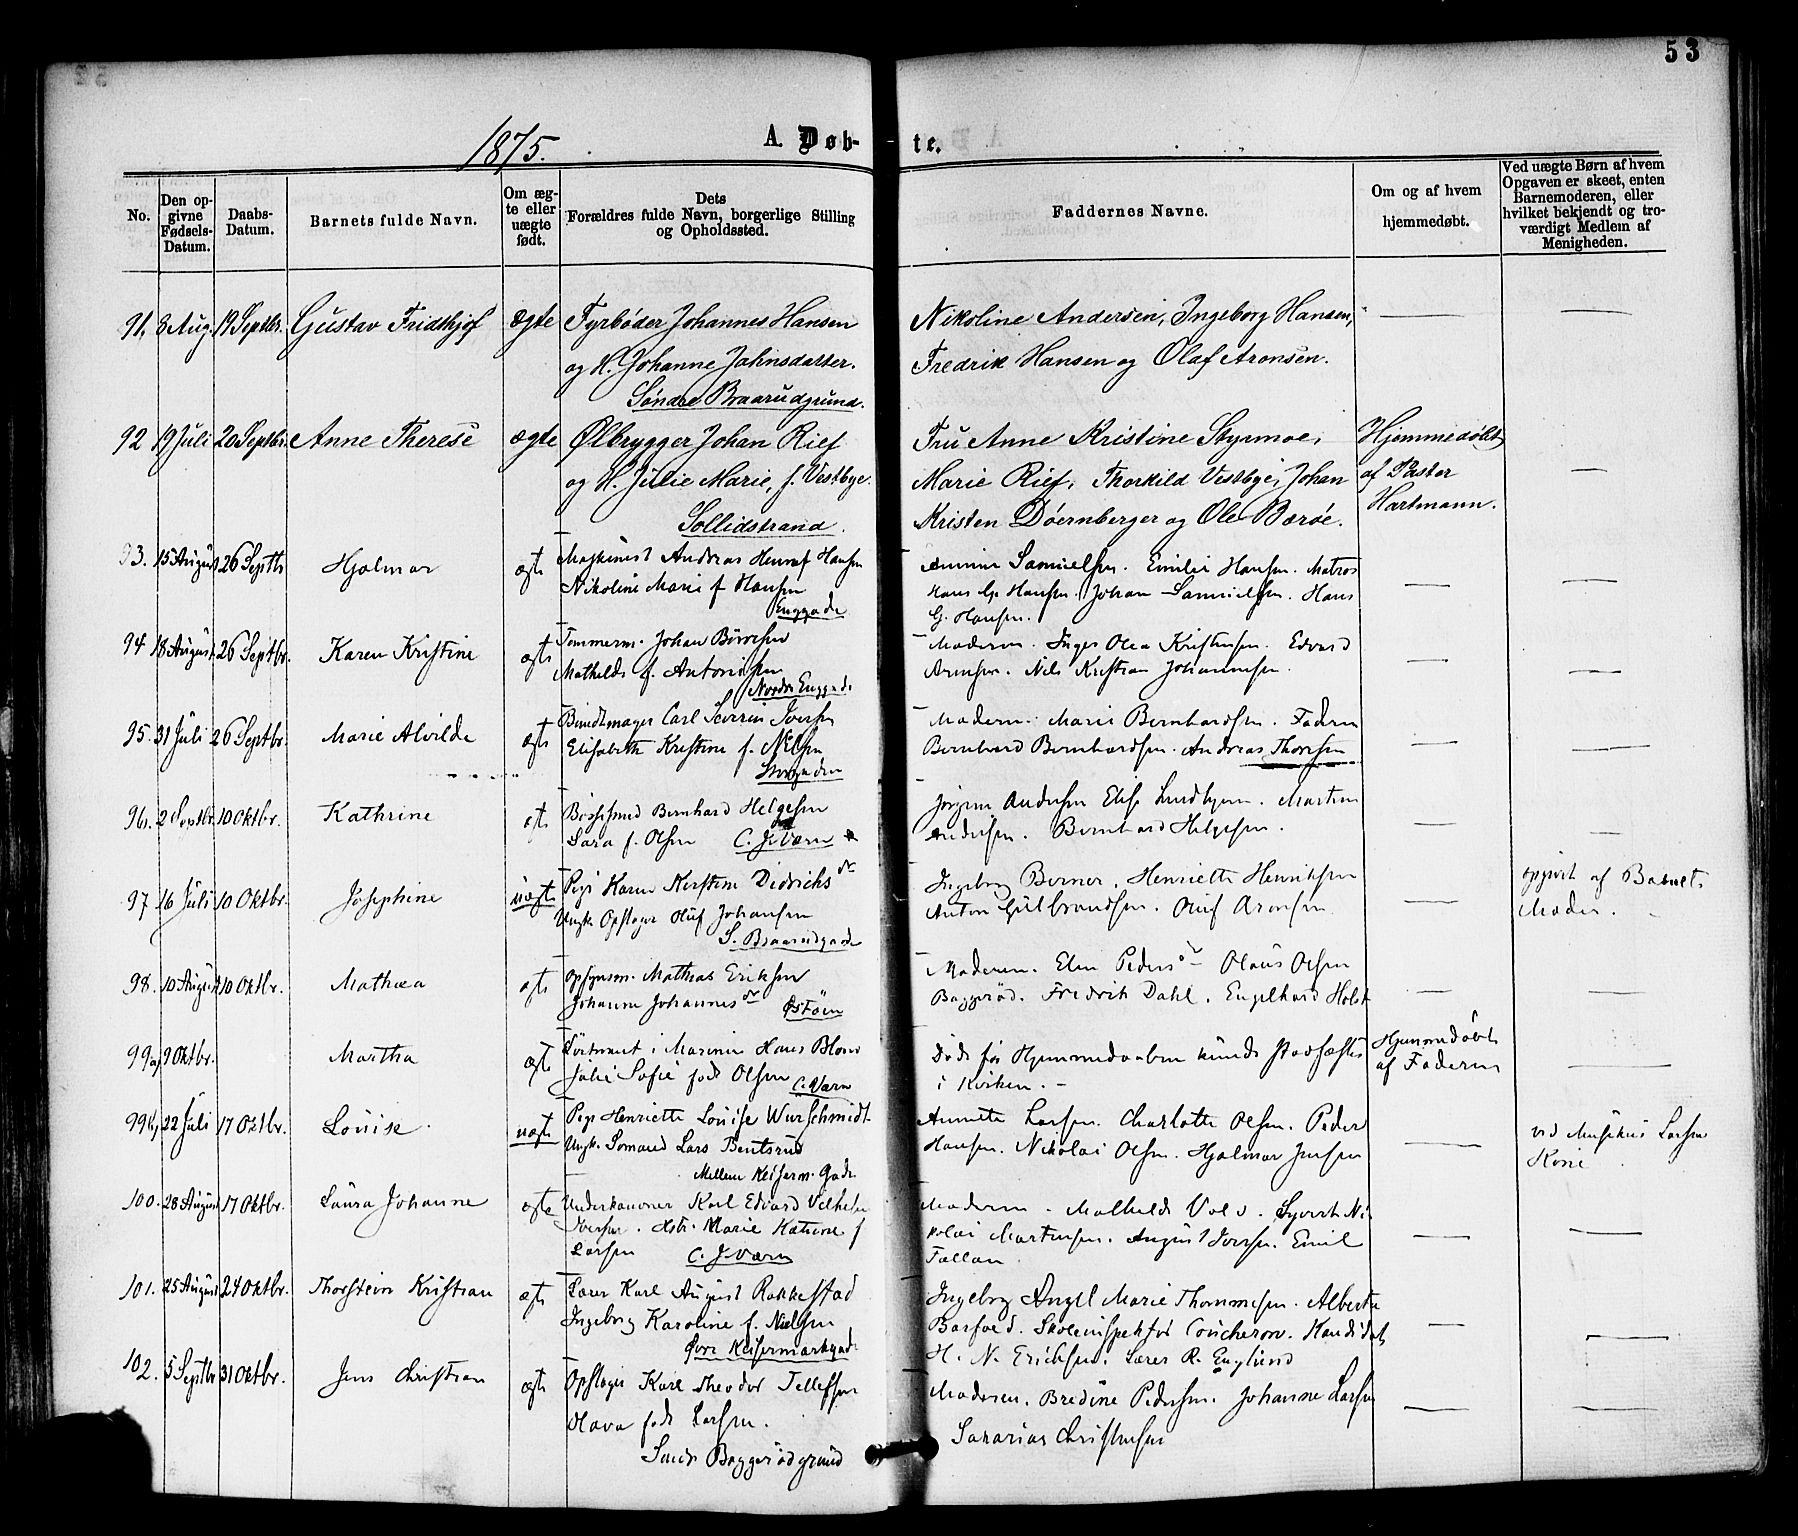 53
1875.
A. Døb-
te.
No.
Den op-
givne
Fødsels-
Datum.
Daabs-
Datum.
Barnets fulde Navn.
Om æg-
te eller
uægte
født.
Dets
Forældres fulde Navn, borgerlige Stilling
og Opholdssted.
Faddernes Navne.
Om og af hvem
hjemmedøbt.
Ved uægte Børn af hvem
Opgaven er skeet, enten
Barnemoderen, eller
hvilket bekjendt og tro-
værdigt Medlem af
Menigheden.
91. 8 Aug. 19 Septbr. Gustav Fridthjof ægte Fyrbøder Johannes Hansen
og H. Johanne Jahnsdatter.
Søndre Braarudgrund.
Nikoline Andersen, Ingeborg Hansen,
Fredrik Hansen og Olaf Aronsen.
92 19 Juli 20 Septbr. Anne Therese ægte Ølbrygger Johan Rief
og H. Julie Marie, f. Vestbye.
Sollidstrand.
Fru Anne Kristine Styrmoe,
Marie Rief, Thorkild Vestbye, Johan
Kristen Döernberger og Ole Bærøe.
Hjemmedøbt
af Pastor
Hartmann.
93. 15 August 26 Septb Hjalmar ægte Maskinist Andreas Hansen
Nikoline Marie f Hansen
Enggade
Samuelsen. Emilie Hansen. Matros
Hans Hansen. Johan Samuelsen. Hans
G. Hansen.
94 18 August 26 Septbr. Karen Kristine ægte Tømmerm. Johan Børresen
Mathilde f. Antonisen
Nordre Enggade
Moderen. Inger Olea Kristensen. Edvard
Arnesen. Nils Kristian Johannesen.
95. 31 Juli 26 Septbr. Marie Alvilde ægte Bundtmager Carl Severin Iversen
Elisabeth Kristine f. Nilsen
Storgaden
Moderen. Marie Bernhardsen. Faderen
Bernhard Bernhardsen. Andreas Thoresen
96. 2 Septbr. 10 Oktbr. Kathrine ægte Bøssesmed Bernhard Helgesen
Sara f. Olsen C. J. Værn
Jørgine Andersen Elise Lundbjern. Martin
Andersen. Bernhard Helgesen.
97 16 Juli 10 Oktbr. Josephine uægte Pige Karen Kirstine Didrichsdr
Ungk Opslager Oluf Johansen
S. Braarudgade
Ingeborg Berner. Henriette Henriksen
Anton Gulbrandsen. Oluf Aronsen
opgivet af Barnets
Moder.
98. 10 August 10 Oktbr. Mathea ægte Opsynsm. Mathias Eriksen
Johanne Johannesdr Østöen
Moderen. Elen Pedersdr Olaus Olsen
Baggerød. Fredrik Dahl. Engelhard Holst
99a) 9 Oktbr. Martha ægte Løitnant i Marinen Hans Blom
Julie Sofie født Olsen C. Værn
Døde før Hjemmedaaben kunde stadfæstes
i Kirken.
Hjemmedøbt
af Faderen
99b) 22 Juli 17 Oktbr. Louise uægte Pige Henriette Louise Wurschmidt
Ungk. Sømand Lars Bentsrud
Mellem Keiserm. Gade
Annette Larsen. Charlotte Olsen. Peder
Hansen. Nikolai Olsen. Hjalmar Jensen
ved Musikus Larsen
Kone
100. 28 August 17 Oktbr. Laura Johanne ægte Underkanoner Karl Edvard Vilhelm
Iversen. Hstr. Marie Katrine f
Larsen C. J. Værn
Moderen. Mathilde Vold. Syvert Ni-
kolai Martinsen. August Iversen. Emil
Tallan
101. 25 August 24 Oktbr. Thorstein Kristian ægte Lærer Karl August Rakkestad
Ingeborg Karoline f. Nielsen
Øvre Keisermarkgade
Ingeborg Angel Marie Thommesen. Alberte
Barfoed. Skoleinspektør Coucheron. Kandidat
H. N. Ericksen. Lærer R. Englund
102. 5 Septbr 31 Oktbr. Jens Christian ægte Opslager Karl Theodor Tellefsen
Olava født Larsen.
Søndre Baggerødgrund
Moderen. Bredine Pedersen. Johanne Larsen
Sakarias Christensen